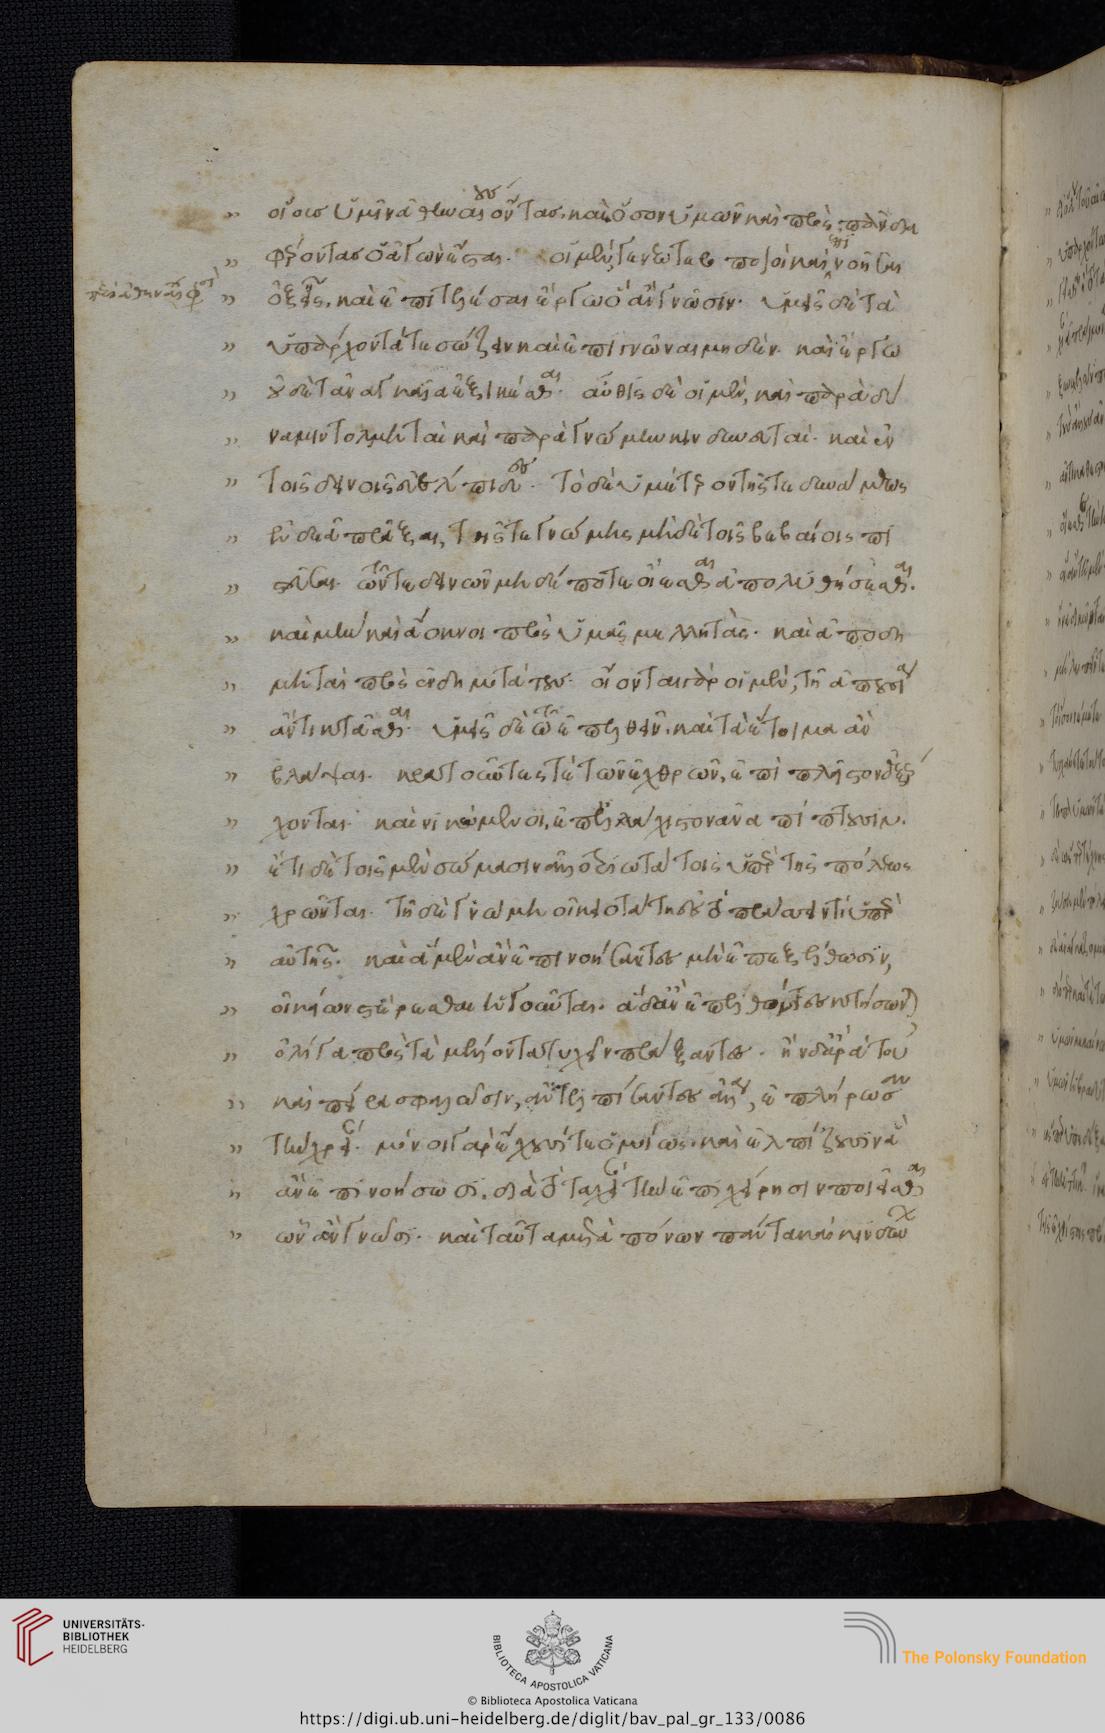 οἵους ὑμῖν ἀθηναίους ὄντας, καὶ ὅσον ὑμῶν καὶ ὡς πᾶν δια
φέροντας ὁ ἀγὼν ἔσται. οἱ μέν γε νεωτεροποιοὶ καὶ ἐπινοῆσαι
περὶ ἀθηναίων φησί
ὀξεῖς, καὶ ἐπιτελέσαι ἔργω ὃ ἂν γνῶσιν. ὑμεῖς δὲ τὰ
ὑπάρχοντά τε σώζειν καὶ ἐπιγνῶναι μηδέν. καὶ ἔργω
οὐδὲ τἀναγκαῖα ἐξικέσθαι. αὖθις δὲ οἱ μέν, καὶ παρὰ δύ
ναμιν τολμηταὶ καὶ παρὰ γνώμην κινδυνευταί. καὶ ἐν
τοῖς δεινοῖς εὐέλπιδες. τὸ δὲ ὑμέτερον τῆς τε δυνάμεως
ἐνδεᾶ πρᾶξαι, τῆς τε γνώμης μηδὲ τοῖς βεβαίοις πι
στεῦσαι. τῶν τε δεινῶν μηδέποτε οἴεσθαι ἀπολυθήσεσθαι.
καὶ μὴν καὶ ἄοκνοι πρὸς ὑμᾶς μελλητάς. καὶ ἀποδη
μηταὶ πρὸς ἐνδημοτάτους. οἴονται γὰρ οἱ μέν, τῇ ἀπουσία
ἄν τι κτᾶσθαι. ὑμεῖς δὲ τῶ ἐπελθεῖν, καὶ τὰ ἕτοιμα ἂν
βλάψαι. κρατοῦντές τε τῶν ἐχθρῶν, ἐπὶ πλεῖστον ἐξέρ
χονται. καὶ νικώμενοι, ἐπ' ἐλάχιστον ἀναπίπτουσιν.
ἔτι δὲ τοῖς μὲν σώμασιν ἀλλοτριωτάτοις ὑπὲρ τῆς πόλεως
χρῶνται. τῇ δὲ γνώμη οἰκειοτάτη ἐς τὸ πράσσειν τι ὑπὲρ
αὐτῆς. καὶ ἃ μὲν ἂν ἐπινοήσαντες μὴ ἐπεξέλθωσιν,
οἰκείων στέρεσθαι ἡγοῦνται. ἃ δ' ἂν ἐπελθόντες κτήσωνται
ὀλίγα πρὸς τὰ μέλλοντα τυχεῖν πράξαντες. ἢν δ' ἄρα του
καὶ πείρα σφαλῶσιν, ἀντελπίσαντες ἄλλα, ἐπλήρωσαν
τὴν χρείαν. μόνοι γὰρ ἔχουσί τε ὁμοίως καὶ ἐλπίζουσιν ἃ
ἂν ἐπινοήσωσι. διὰ τὸ ταχεῖαν τὴν ἐπιχείρησιν ποιεῖσθαι
ὧν ἂν γνῶσι. καὶ ταῦτα μετὰ πόνων πάντα καὶ κινδύνων
UNIVERSITÄTS-
BIBLIOTHEK
HEIDELBERG
BIBLIOTECA APOSTOLICA VATICANA
The Polonsky Foundation
© Biblioteca Apostolica Vaticana
https://digi.ub.uni-heidelberg.de/diglit/bav_pal_gr_133/0086